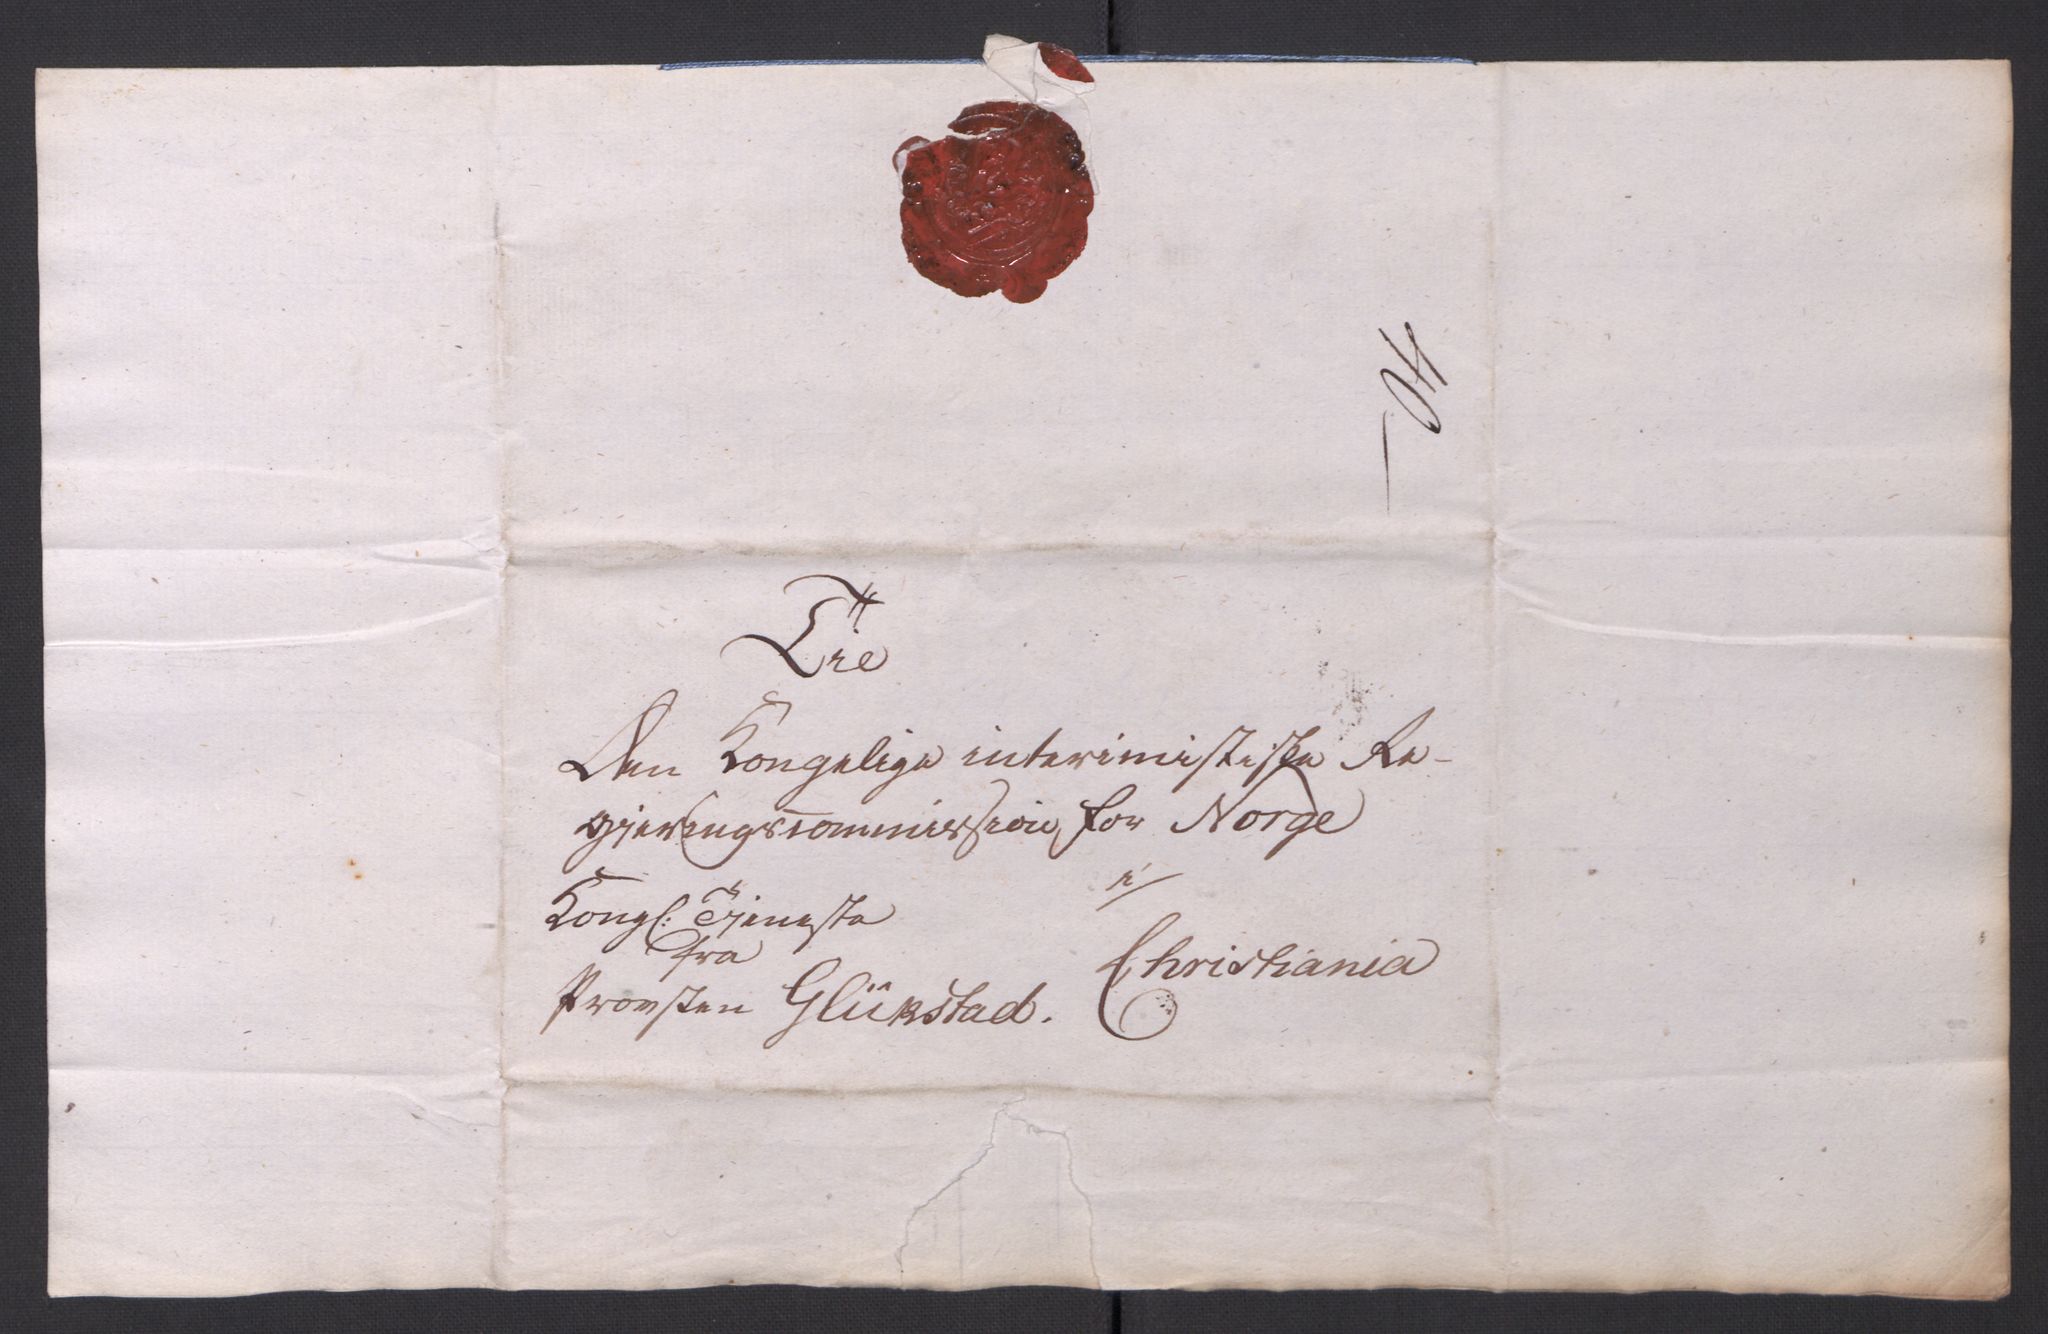 Til
Den Kongelige interimistiske Re-
gjeringscommission for Norge
i
Christiania
Kongl: Tjeneste
fra
Provsten Glükstad.